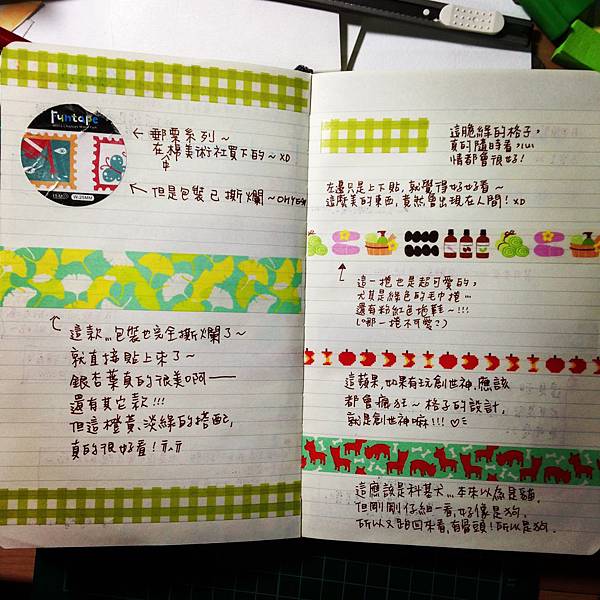 Funtape
W:25MM
← 郵票系列~
在楊美術社買下的~XD
← 但是包裝已撕爛~OHYEAH
這款...包裝也完全撕爛了~
就直接貼上來了~
銀杏葉真的很美啊——
還有其它款!!!
但這橙黃、淡綠的搭配,
真的很好看!
這脆綠的格子,
真的隨時看,心
情都會很好!
在邊只是上下貼,就覺得好好看~
這麼美的東西,竟然會出現在人間! XD
這一捲也是超可愛的,
尤其是綠色的毛巾捲...
還有粉紅色拖鞋~!!!
(哪一捲不可愛?)
這蘋果,如果有玩創世神,應該
都會瘋狂~格子的設計,
就是創世神嘛!!! ♡
這應該是科基犬...本來以為是貓,
但剛剛仔細一看,好像是狗.
所以又跑回來看,有骨頭!所以是狗.